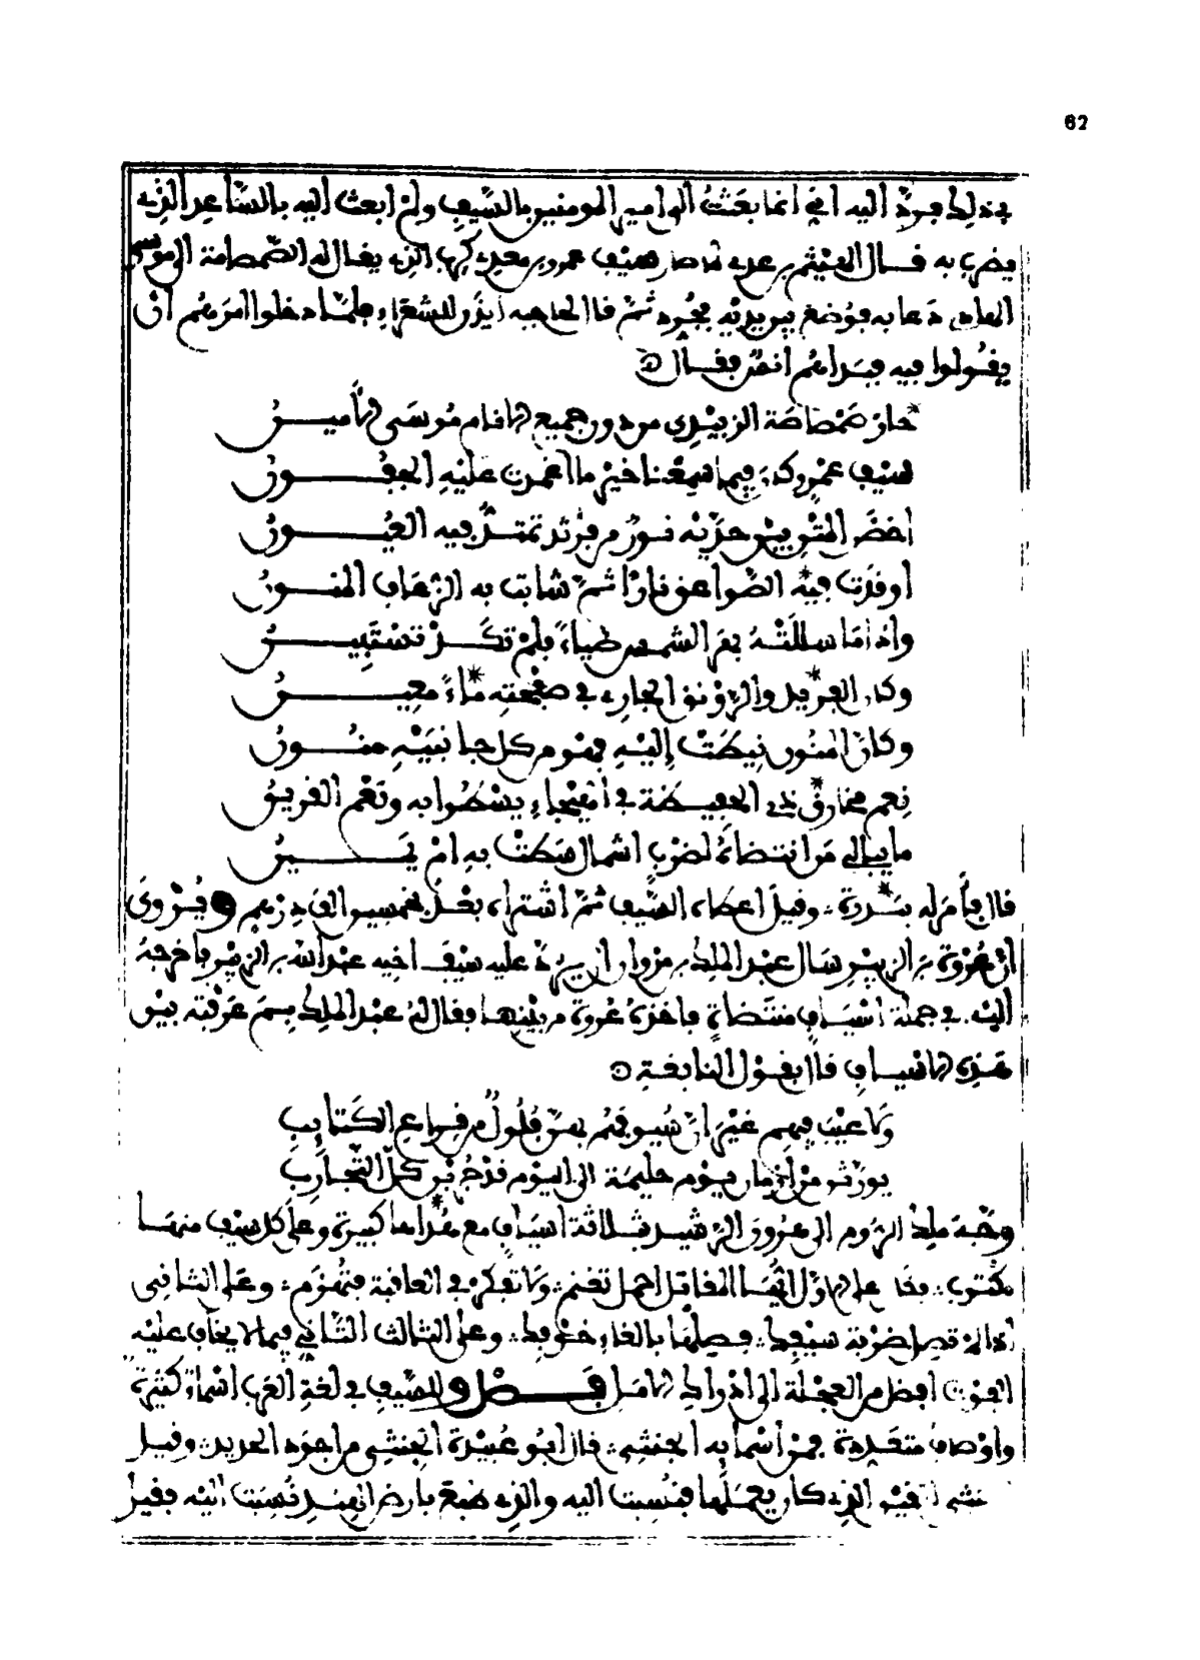 62
في ذلك فرد اليه اني انما بعثت الى امير المومنين بالسيف ولم ابعث اليه بالساعد الذي
يضرب به قال الهيثم بن عدي لما صار سيف عمرو بن معدي كرب الذي يقال له الصمصامة الى موسى
الهادي دعا به فوضع بين يديه مجرد ثم قال لحاجبه ايذن للشعراء فلما دخلوا امرهم ان
يقولوا فيه فبدأهم انس فقال
حاز صمصامة الزبيدي من دون جميع الانام موسى الأمين
سيف عمرو وكان فيما سمعنا خير ما اغمدت عليه الجفون
اخضر المتن بين حديه نور من فرند تمتد فيه العيون
اوقدت فيه الصواعق نارا ثم شابت به الزعاف المنون
واذا ما سللته بهر الشمس ضياء فلم تكد تستبين
وكأن الفرند والرونق الجاري في صفحته ماء معين
وكان المنون نيطت إليه فهو من كل جانبيه منون
نعم مخراق ذي الحفيظة في الهيجاء يسطوا به ونعم القرين
ما يبالي من انتضاه لضرب اشمال سطت به ام يمين
قال فأمر له ببدرة وقيل اعطاه السيف ثم اشتراه بعد بخمسين الف درهم ويروى
ان عروة بن الزبير سال عبد الملك بن مروان ان يرد عليه سيف اخيه عبد الله بن الزبير فاخرجه
اليه في جملة اسياف منتضاة فاخذه عروة من بينها فقال له عبد الملك بم عرفته بين
هذه الاسياف قال بقول النابغة
ولا عيب فيهم غير ان سيوفهم بهن فلول من قراع الكتايب
يورثن من أزمان يوم حليمة الى اليوم قد جربن كل التجارب
وجه ملك الروم الى هرون الرشيد بثلاثة اسياف مع هدايا كبيرة وعلى كل سيف منها
مكتوب فكان على الاول ايها المقاتل احمل تغنم ولا تفكر في العاقبة فتهزم وعلى الثاني
اذا لم تصل ضربة سيفك فصلها بالقاء خوفك وعلى الثالث التاني فيما لا يخاف عليه
الفوت افضل من العجلة الى ادراك الامل فصل وللسيف في لغة العرب اسماء كثيرة
واوصاف متعددة فمن أسمايه الخنشي قال ابو عبيدة الخنشي من اجود الحديد وقيل
القين الذي كان يعملها فنسبت اليه والذي طبع بارض الهند نسبت اليه فقيل